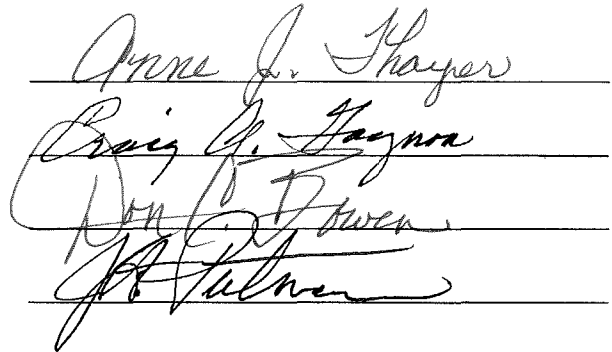 Anne J. Thayer
Craig A. Gagnon
Don C Bowen
J.A. Pulman